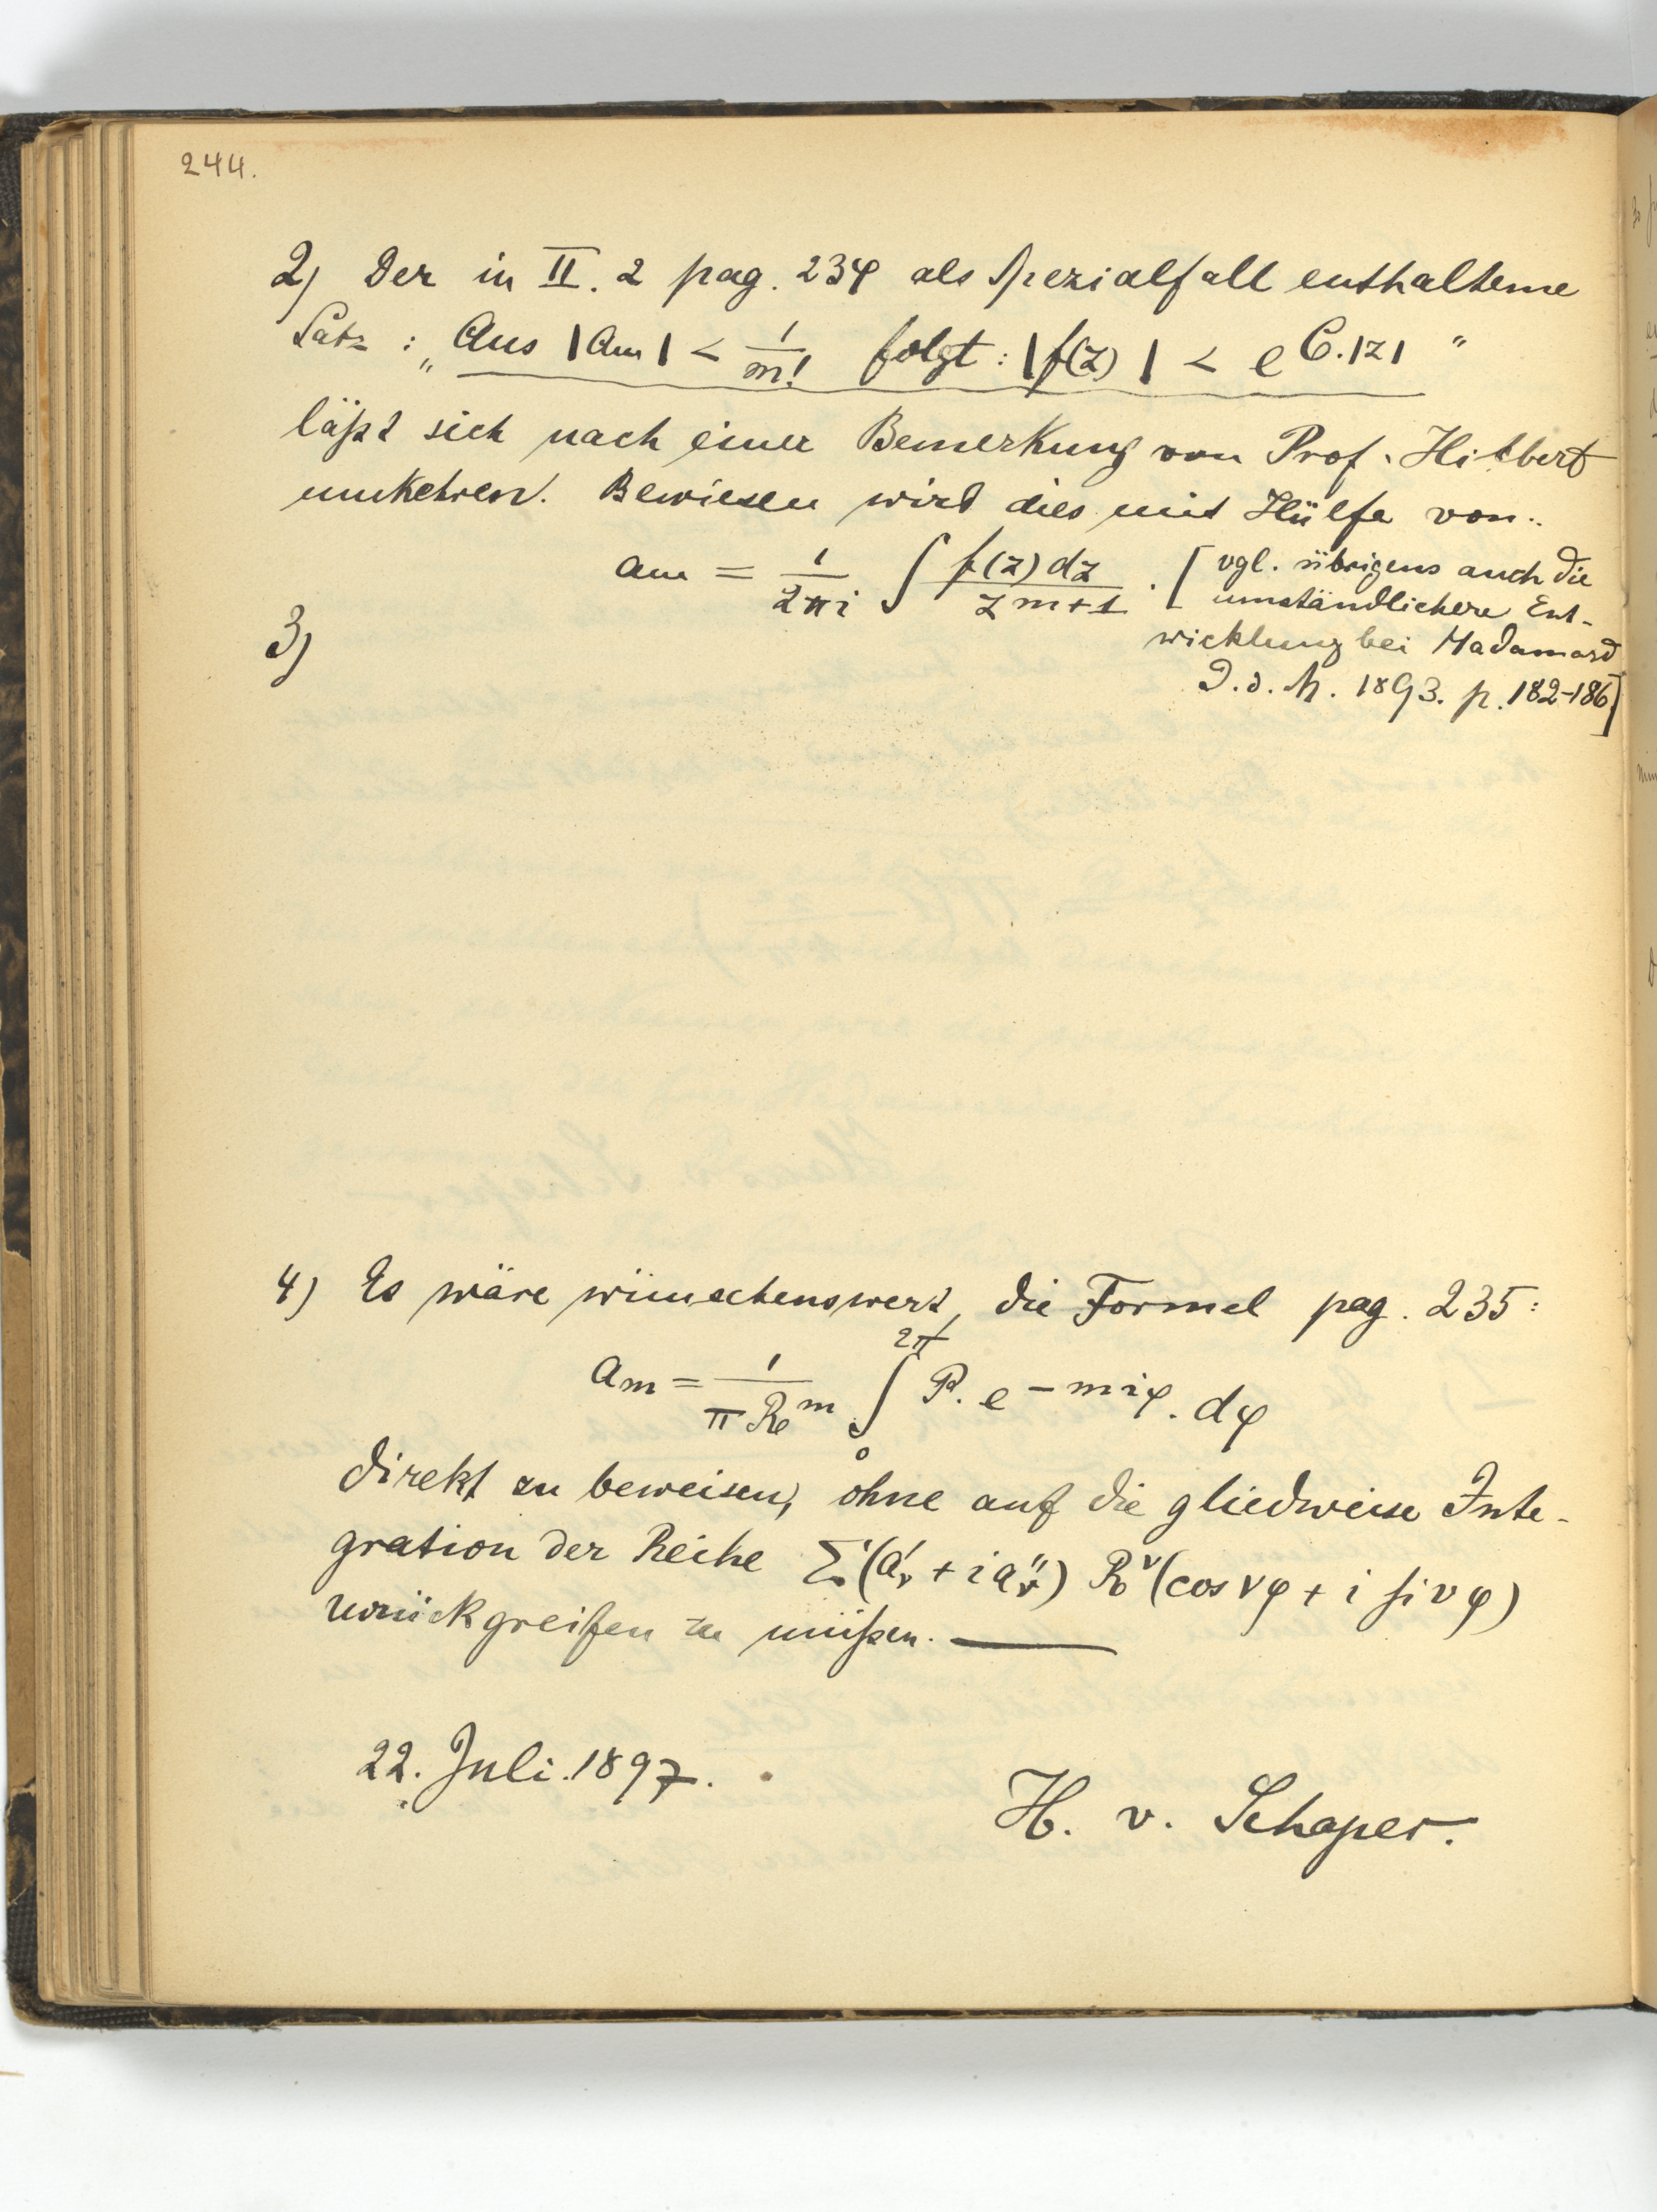 244.
2) Der in II. 2 pag. 234 als Spezialfall enthaltene
Satz : „Aus |am| < 1/m! folgt : |f(z)| < e^C.|z| "
läßt sich nach einer Bemerkung von Prof. Hilbert
umkehren. Bewiesen wird dies mit Hülfe von:
am = 1/2πi ∫ f(z)dz / z^m+1 . [vgl. übrigens auch die
umständlichere Ent-
wicklung bei Hadamard
J. d. M. 1893. p. 182-186]
3)
4) Es wäre wünschenswert, die Formel pag. 235:
am = 1/πR^m ∫_0^2π P. e^-miφ . dφ
direkt zu beweisen, ohne auf die gliedweise Inte-
gration der Reihe Σ(a'ν + i a''ν) R^ν (cos νφ + i si νφ)
zurückgreifen zu müßen. —
22. Juli. 1897.
H. v. Schaper.